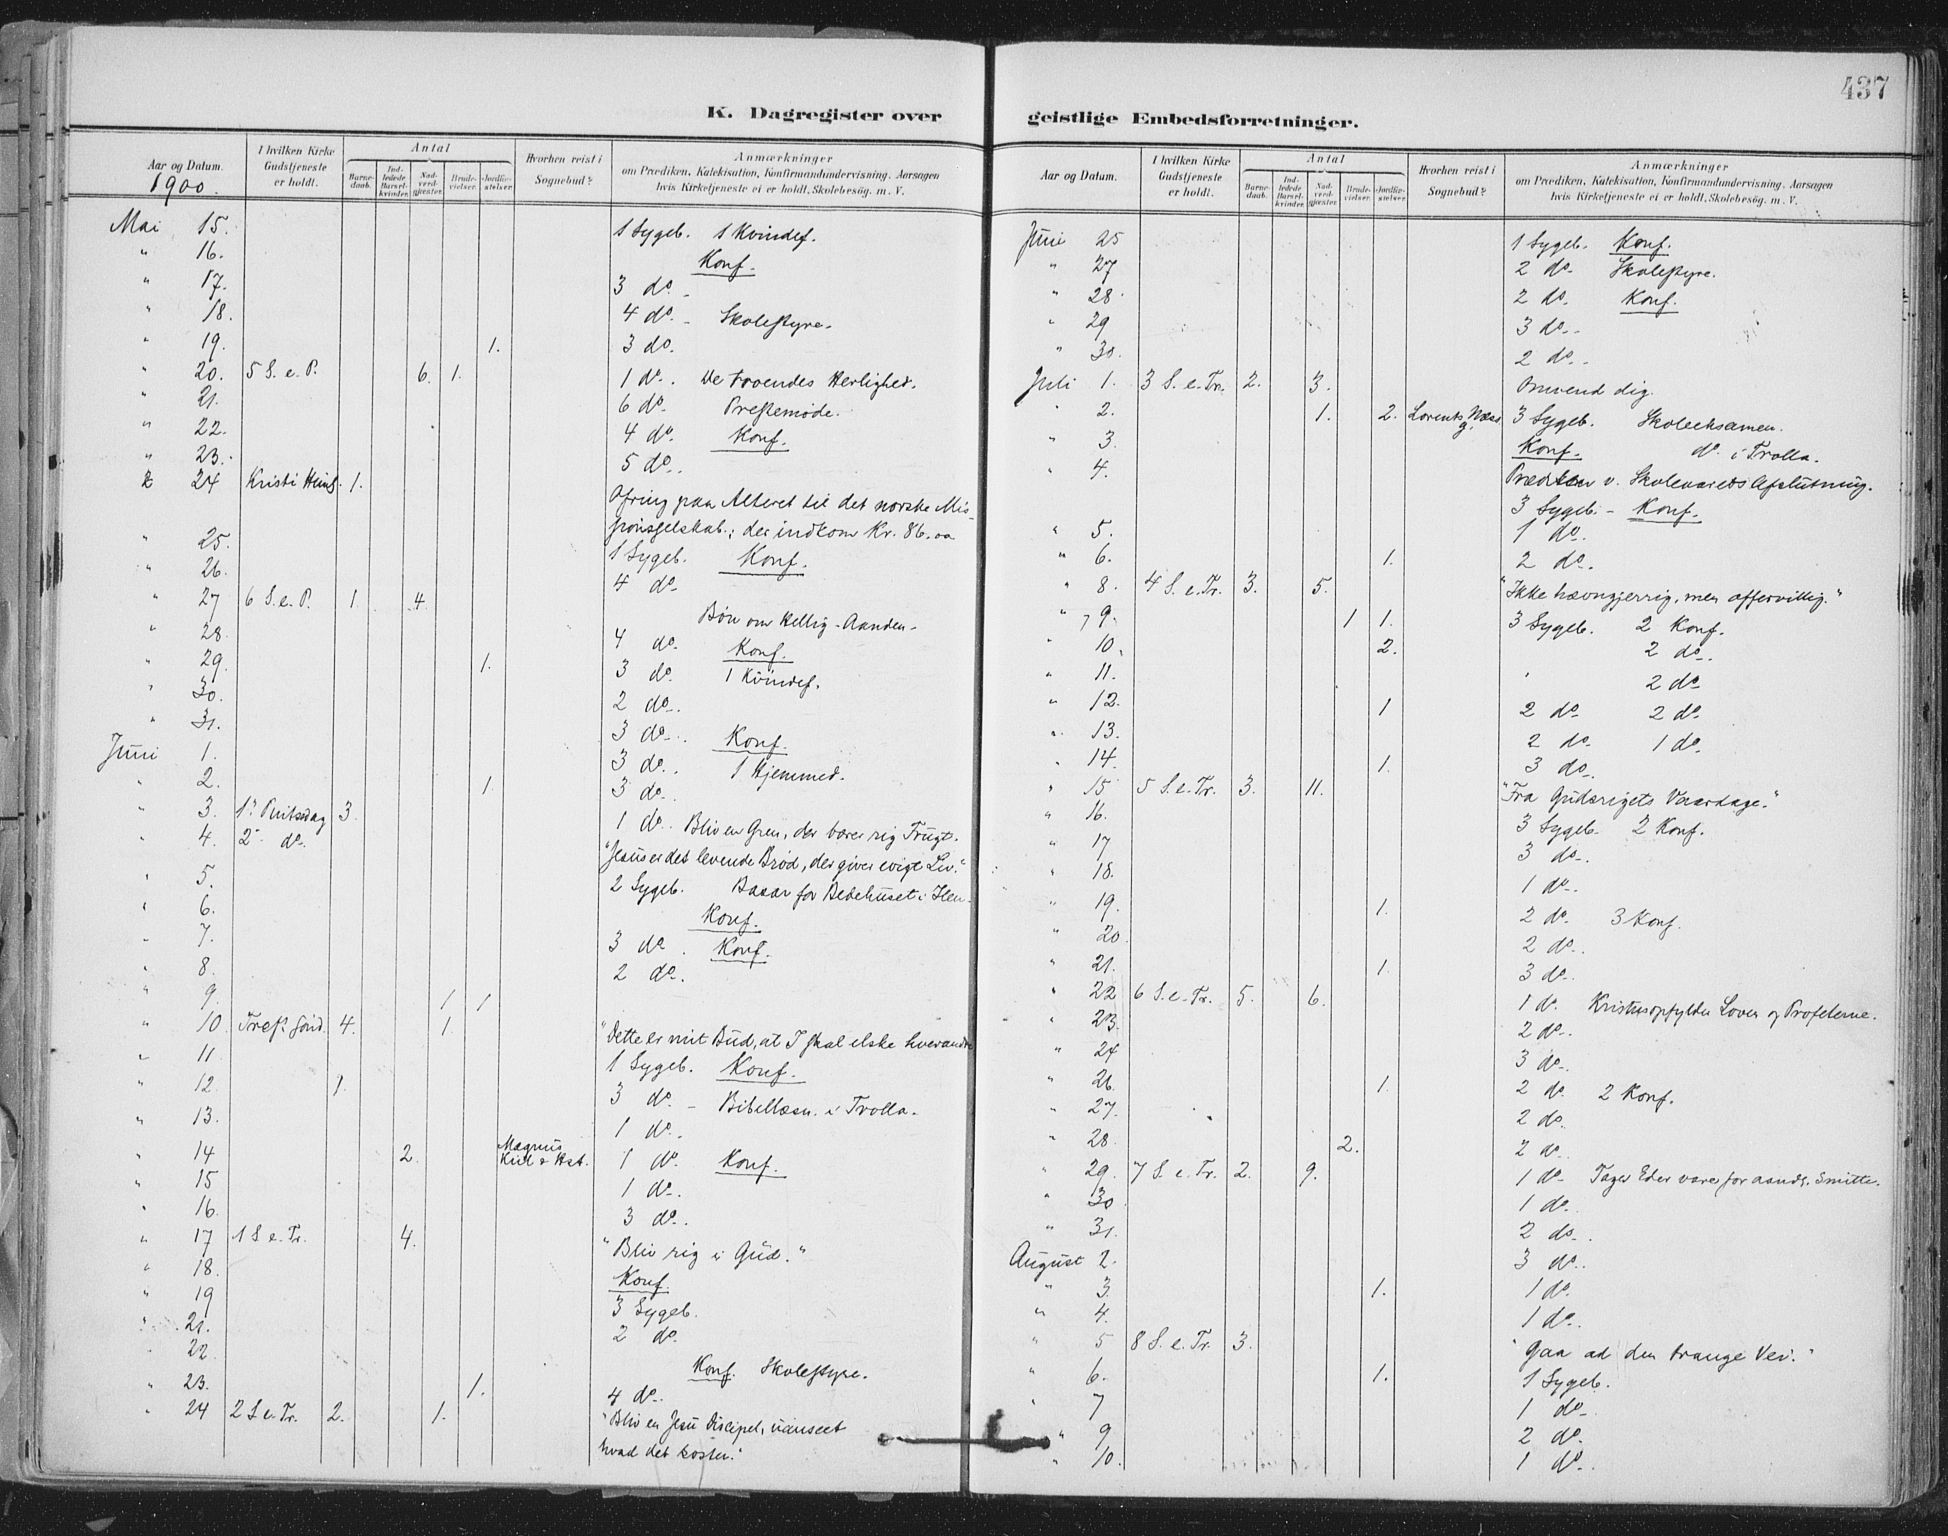 437
K. Dagregister over
Aar og Datum. I hvilken Kirke Gudstjeneste er holdt. Antal Barnedaab. Indledede Barselkvinder. Nadverdgjester. Brudevielser. Jordfæstelser. Hvorhen reist i Sognebud? Anmærkninger om Prædiken, Katekisation, Konfirmandundervisning. Aarsagen hvis Kirketjeneste ei er holdt. Skolebesøg. m. V.
1900.
Mai 15. 1 Sygeb. 1 Kvindef.
" 16. Konf.
" 17. 3 do. -
" 18. 4 do. - Skolestyre.
" 19. 1. 3 do.
" 20. 5 S. e. P. 6. 1. 1 do. De troendes Herlighed.
" 21. 6 do. Prestemøde.
" 22. 4 do. Konf.
" 23. 5 do.
24 Kristi Himf. 1. Ofring paa Alteret til det norske Mis-
sionsselskab.; der indkom Kr. 86.00
" 25. 1 Sygeb. Konf.
" 26. 4 do
" 27 6 S. e. P. 1. 4. Bøn om Hellig-Aanden-
" 28. 4 do. Konf.
" 29. 1. 3 do. 1 Kvindef.
" 30. 2 do.
" 31. 3 do. Konf.
Juni 1. 3 do. 1 Hjemmed.
" 2. 1. 3 do.
" 3. 1. Pintsedag 3. 1 do. Bliv en Gren, der bærer rig Frugt.
" 4. 2. do. "Jesus er det levende Brød, der giver evigt Liv."
" 5. 2 Sygeb. Basar for Bedehuset i Ilen.
" 6. Konf.
" 7. 3 do Konf.
" 8. 2 do.
" 9. 1 1
" 10. Tref. Sønd. 4. 1. "Dette er mit Bud, at I skal elske hverandre
" 11. 1 Sygeb. Konf.
" 12. 1. 3 do. - Bibellæsn. i Trolla.
" 13. 1 do.
" 14 2. Magnus
1 do. Konf.
" 15 1 do.
" 16. 3 do.
" 17 1 S. e. Tr. 4. "Bliv rig i Gud."
" 18. Konf.
" 19 3 Sygeb.
" 21. 2 do.
" 22 Konf. Skolestyre.
" 23. 1. 4 do.
" 24 2 S. e. Tr. 2. 1. "Bliv en Jesu Discipel, uanseet
hvad det koster."
geistlige Embedsforretninger.
Aar og Datum. I hvilken Kirke Gudstjeneste er holdt. Antal Barnedaab. Indledede Barselkvinder. Nadverdgjester. Brudevielser. Jordfæstelser. Hvorhen reist i Sognebud? Anmærkninger om Prædiken, Katekisation, Konfirmandundervisning. Aarsagen hvis Kirketjeneste ei er holdt. Skolebesøg. m. V.
Juni 25 1 Sygeb. Konf.
" 27 2 do. Skolestyre.
" 28. 2 do. Konf.
" 29 3 do.
" 30. 2 do.
Juli 1. 3 S. e. Tr. 2. 3. Omvend dig.
" 2. 1. 2. Lorents Næss 3 Sygeb. Skoleeksamen.
" 3. Konf. do. i Trolla.
" 4. Prædiken v. Skoleaarets Afslutning.
3 Sygeb. - Konf.
" 5. 1 do.
" 6. 1. 2 do.
" 8. 4 S. e. Tr. 3. 5. "Ikke hævngjerrig, men offervillig."
" 9. 1 1. 3 Sygeb. 2 Konf.
" 10. 2. 2 do.
" 11. 2 do
" 12. 1 2 do 2 do.
" 13. 2 do. 1 do.
" 14. 1. 3 do.
" 15 5 S. e. Tr. 3. 11. "Fra Gudsrigets Vaardage."
" 16. 3 Sygeb. 2 Konf.
" 17 3 do.
" 18. 1 do.
" 19. 1. 2 do. 3 Konf.
" 20. 2 do.
" 21. 1. 3 do.
" 22 6 S. e. Tr. 5. 6. 1 do. Kristus opfylder Loven og Profeterne.
" 23. 2 do.
" 24 3 do.
" 26. 1. 2 do. 2 Konf.
" 27. 2 do.
" 28. 2. 2 do.
" 29. 7 S. e. Tr. 2. 9. 1 do. Tager Eder vare for aands. Smitte.
" 30 1 do.
" 31. 2 do.
August 2. 3 do.
" 3. 1. 1 do.
" 4. 1 do.
" 5 8 S. e. Tr. 3. "Gaa ad den trange Vei."
" 6. 1. 1 Sygeb.
" 7 1 do.
" 9 2 do.
" 10. 1 do.